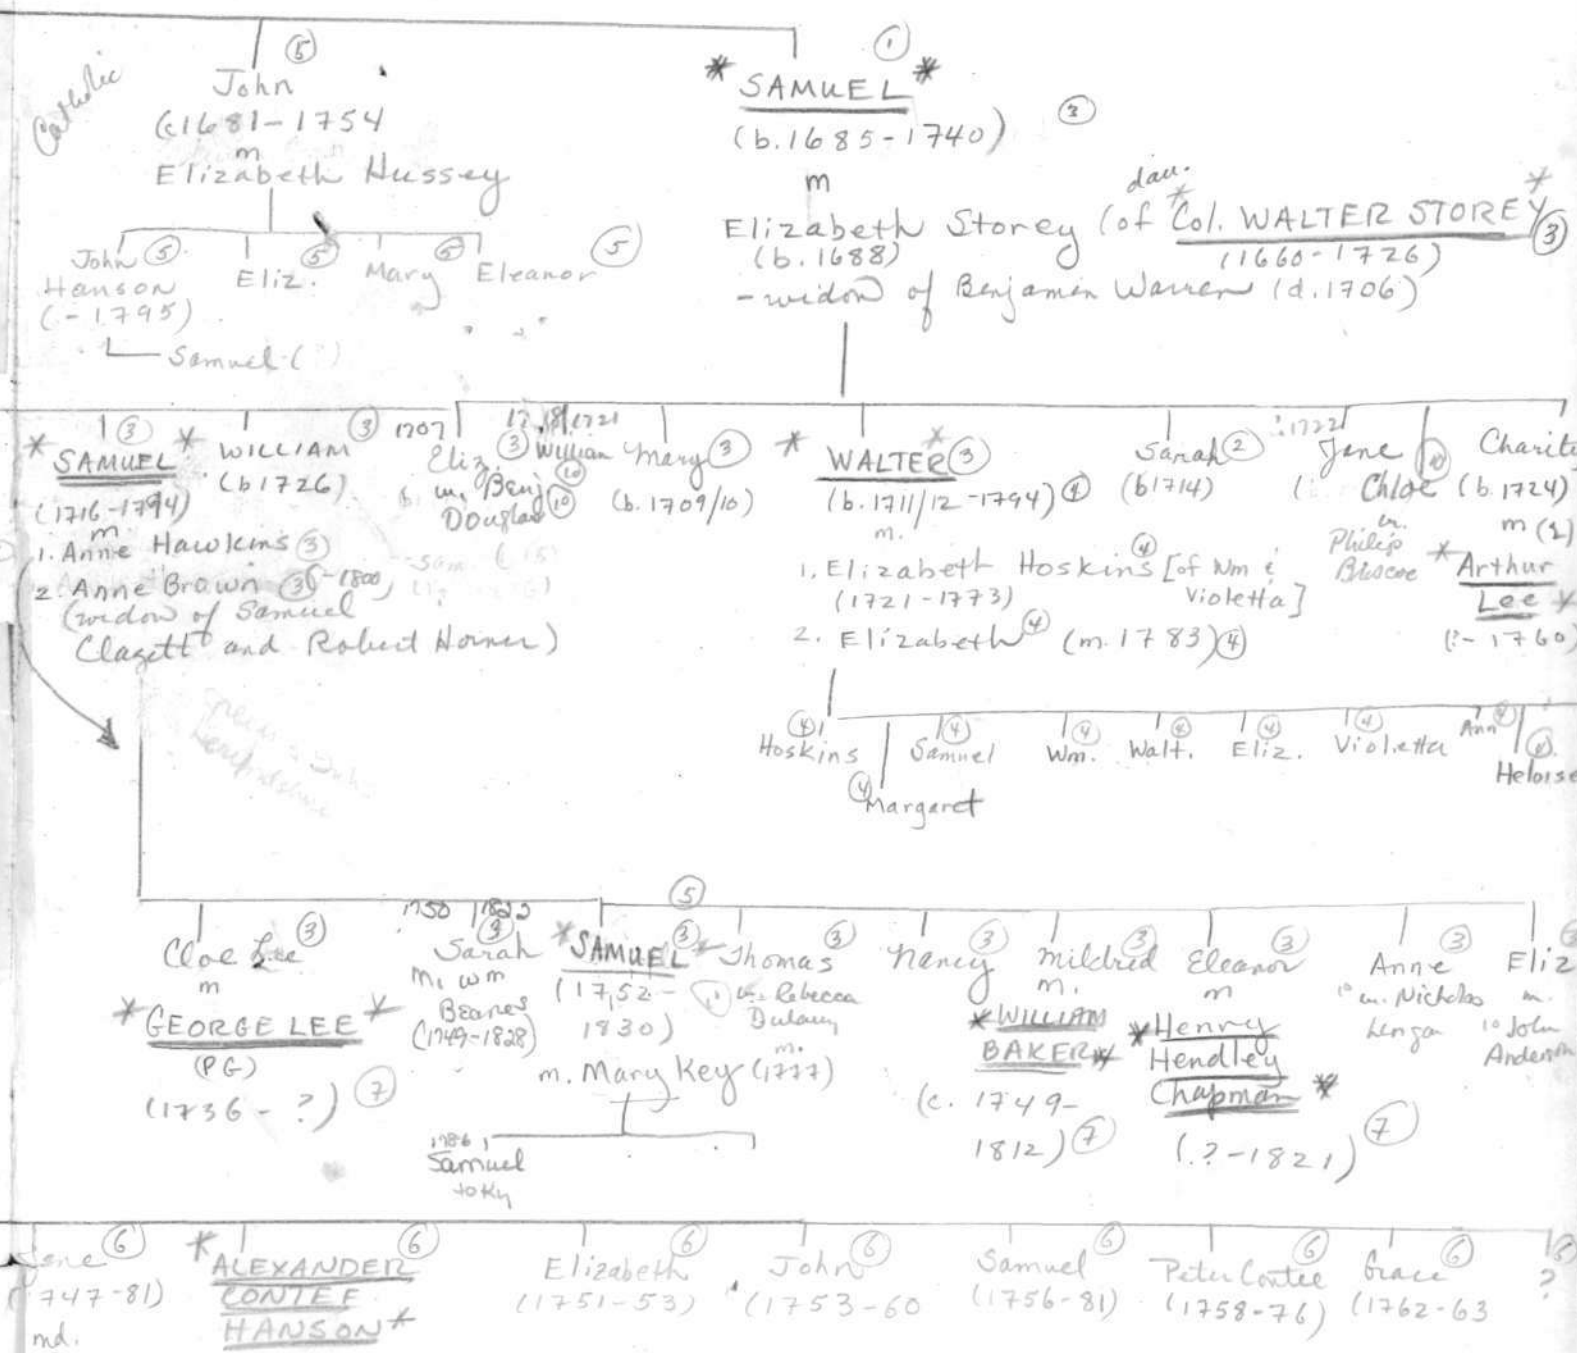 Catholic
⑤
John
(c1681-1754
m
Elizabeth Hussey
John ⑤
Hanson
(-1795)
Samuel (?)
Eliz. ⑤
Mary ⑤
Eleanor ⑤
①
* SAMUEL *
(b.1685-1740) ③
m
dau.
Elizabeth Storey (of * Col. WALTER STOREY * ③
(b.1688)
(1660-1726)
- widow of Benjamin Warren (d.1706)
③
* SAMUEL *
(1716-1794)
m.
1. Anne Hawkins ③
2. Anne Brown ③ -1800)
(widow of Samuel
Clagett and Robert Horner)
WILLIAM ③
(b1726)
1707
Eliz. ③
m. Benj ⑩
Douglas ⑩
1721
William
Mary ③
(b.1709/10)
* WALTER * ③
(b.1711/12-1794) ④
m.
1. Elizabeth Hoskins ④ [of Wm &
(1721-1773) Violetta]
2. Elizabeth ④ (m.1783) ④
Sarah ②
(b1714)
1722
Jane
⑩
Chloe
m.
Philip
Briscoe
Charity
(b.1724)
m (2)
* Arthur
Lee *
(?-1760)
④
Hoskins
④
Margaret
④
Samuel
④
Wm.
④
Walt.
④
Eliz.
④
Violetta
Ann ④
④
Heloise
⑤
Cloe Lee ③
m
* GEORGE LEE *
(PG)
(1736-?) ⑦
1750 1822
③
Sarah
m. Wm
Beanes
(1749-1828)
* SAMUEL ③ *
(1752-
1830)
m. Mary Key (1777)
m.
1786
Samuel
to Ky
Thomas ③
m. Rebecca
Dulany
Nancy ③
Mildred ③
m.
* WILLIAM
BAKER *
(c. 1749-
1812) ⑦
Eleanor ③
m
* Henry
Hendley
Chapman *
(.?-1821) ⑦
Anne ③
10 m. Nicholas
Lingan
Eliz
m.
10 John
Anderson
Jane ⑥
747-81)
md.
* ALEXANDER ⑥
CONTEE
HANSON *
Elizabeth ⑥
(1751-53)
John ⑥
(1753-60
Samuel ⑥
(1756-81)
Peter Contee ⑥
(1758-76)
Grace ⑥
(1762-63
⑥
?